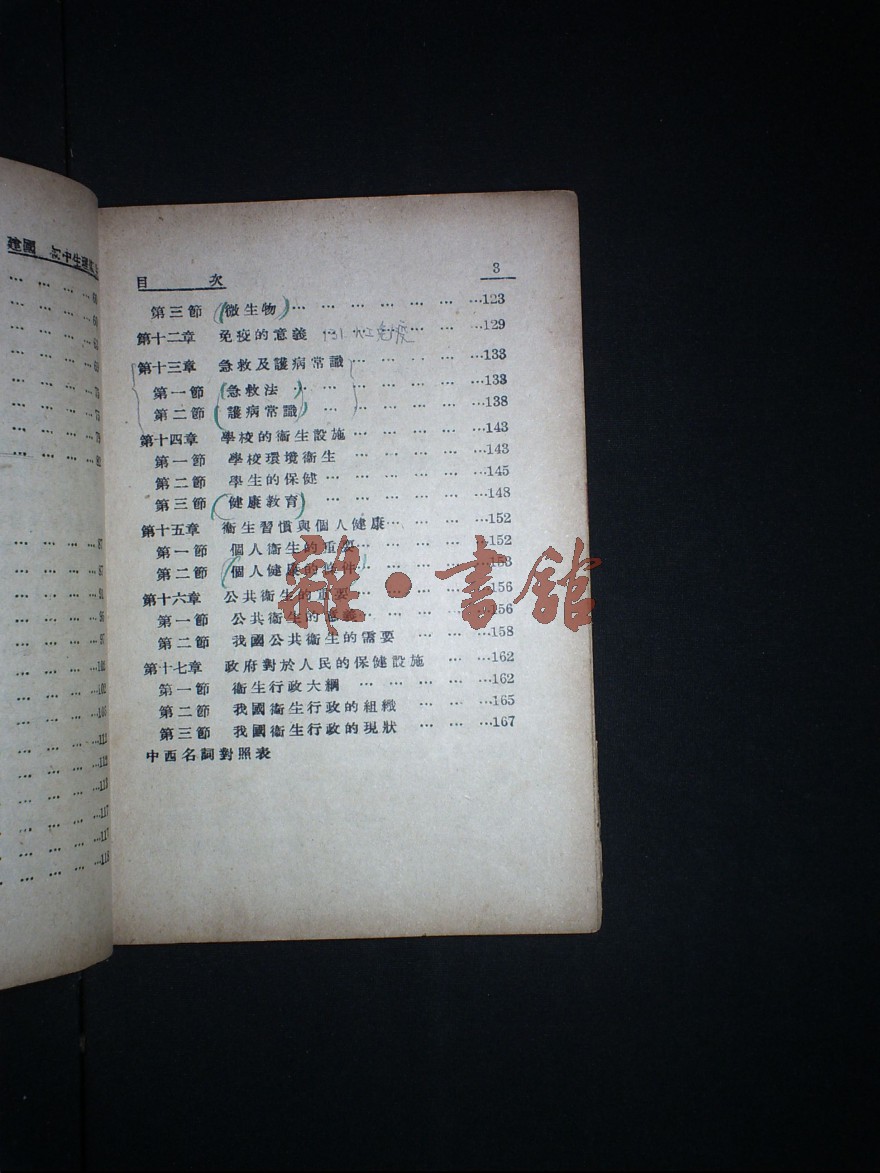 建國 初中生理
目 次 3
第三節 (微生物) … … … … … … …123
第十二章 免疫的意義 131 … … …129
第十三章 急救及護病常識 … … … … …133
第一節 (急救法) … … … … … …133
第二節 (護病常識) … … … … … …138
第十四章 學校的衞生設施 … … … … …143
第一節 學校環境衞生 … … … … …143
第二節 學生的保健 … … … … … …145
第三節 (健康教育) … … … … … …148
第十五章 衞生習慣與個人健康 … … … …152
第一節 個人衞生的重要 … … … … …152
第二節 (個人健康的條件) … … … …153
第十六章 公共衞生的重要 … … … … …156
第一節 公共衞生的意義 … … … … …156
第二節 我國公共衞生的需要 … … …158
第十七章 政府對於人民的保健設施 … … …162
第一節 衞生行政大綱 … … … … …162
第二節 我國衞生行政的組織 … … …165
第三節 我國衞生行政的現狀 … … …167
中西名詞對照表
雜·書館